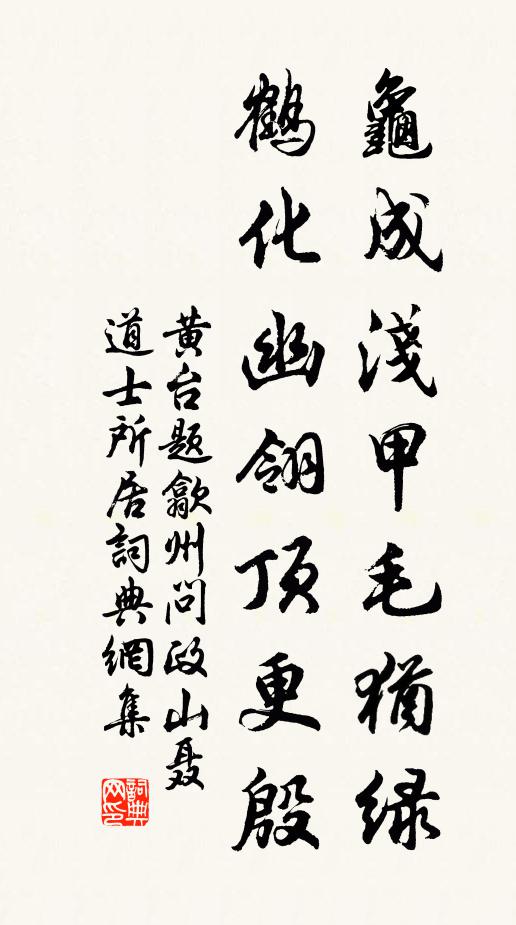 龜成淺甲毛猶绿
鶴化幽翎頂更殷
黄台题歙州问政山聂
道士所居詞典網集
詞典
网印